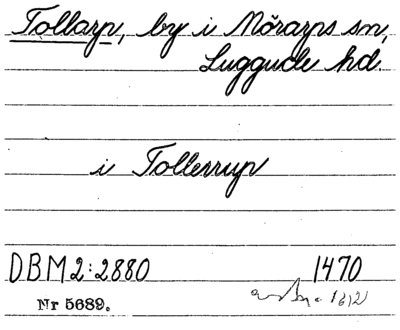 Tollarp, by i Mörarps sn,
Luggude hd.
i Tollerrup
DBM 2:2880 1470
Nr 5689. 1612